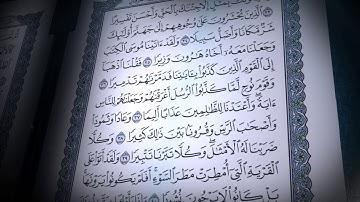 بِمَثَلٍ إِلَّا جِئْنَٰكَ بِٱلْحَقِّ وَأَحْسَنَ تَفْسِيرًا ٣٣
ٱلَّذِينَ يُحْشَرُونَ عَلَىٰ وُجُوهِهِمْ إِلَىٰ جَهَنَّمَ أُوْلَٰٓئِكَ
شَرٌّ مَّكَانًا وَأَضَلُّ سَبِيلًا ٣٤ وَلَقَدْ ءَاتَيْنَا مُوسَى ٱلْكِتَٰبَ
وَجَعَلْنَا مَعَهُۥٓ أَخَاهُ هَٰرُونَ وَزِيرًا ٣٥ فَقُلْنَا ٱذْهَبَآ
إِلَى ٱلْقَوْمِ ٱلَّذِينَ كَذَّبُواْ بِـَٔايَٰتِنَا فَدَمَّرْنَٰهُمْ تَدْمِيرًا ٣٦
وَقَوْمَ نُوحٍ لَّمَّا كَذَّبُواْ ٱلرُّسُلَ أَغْرَقْنَٰهُمْ وَجَعَلْنَٰهُمْ لِلنَّاسِ
ءَايَةً وَأَعْتَدْنَا لِلظَّٰلِمِينَ عَذَابًا أَلِيمًا ٣٧ وَعَادًا وَثَمُودَاْ
وَأَصْحَٰبَ ٱلرَّسِّ وَقُرُونًۢا بَيْنَ ذَٰلِكَ كَثِيرًا ٣٨ وَكُلًّا
ضَرَبْنَا لَهُ ٱلْأَمْثَٰلَ وَكُلًّا تَبَّرْنَا تَتْبِيرًا ٣٩ وَلَقَدْ أَتَوْاْ عَلَى
ٱلْقَرْيَةِ ٱلَّتِيٓ أُمْطِرَتْ مَطَرَ ٱلسَّوْءِ أَفَلَمْ يَكُونُواْ يَرَوْنَهَا
بَلْ كَانُواْ لَا يَرْجُونَ